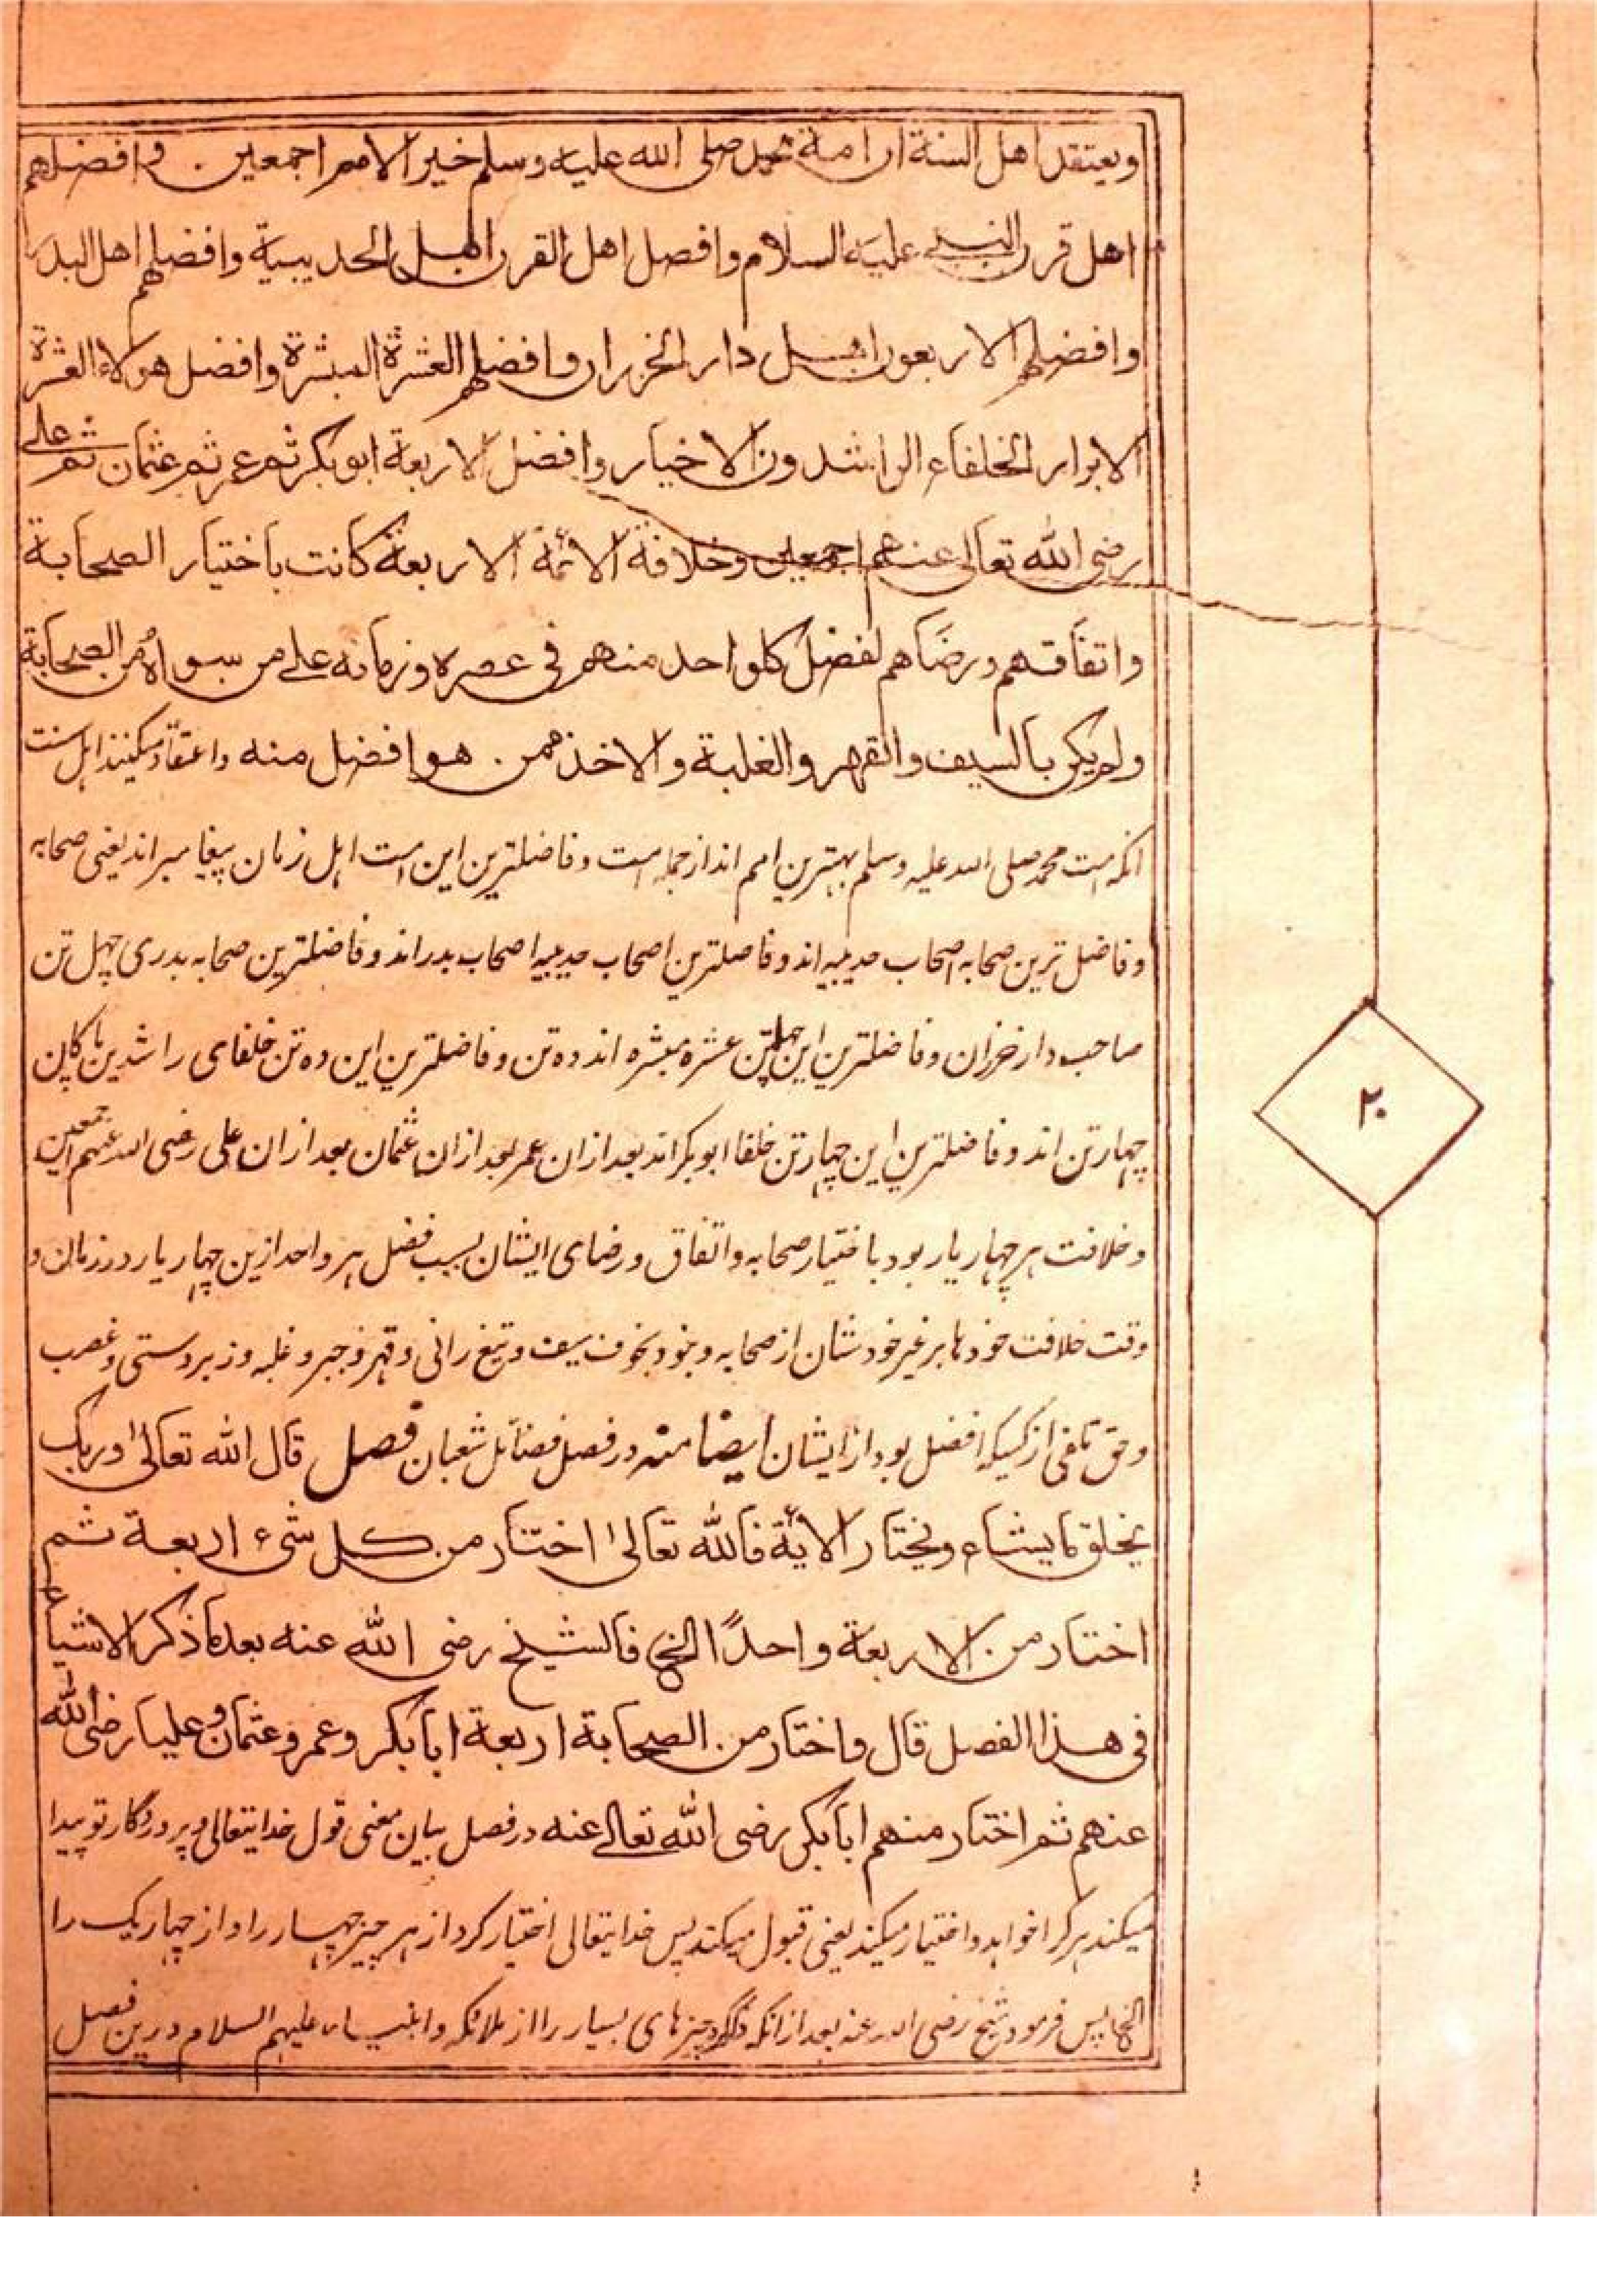 ويعتقد اهل السنة ان امة محمد صلى الله عليه وسلم خير الامم اجمعين . وافضلهم
اهل قرن النبي عليه السلام وافضل اهل القرن اهل الحديبية وافضلهم اهل البدر
وافضلهم الاربعون اهل دار الخزران وافضلهم العشرة المبشرة وافضل هولاء العشرة
الابرار الخلفاء الراشدون الاخيار وافضل الاربعة ابوبكر ثم عمر ثم عثمان ثم على
رضى الله تعالى عنهم اجمعين وخلافة الائمة الاربعة كانت باختيار الصحابة
واتفاقهم ورضاهم لفضل كلواحد منهم فى عصره وزمانه على من سواه من الصحابة
ولم يكن بالسيف والقهر والغلبة والاخذ ممن . هو افضل منه واعتقاد میکنند اہل سنت
انکہ امت محمد صلی اللہ علیہ وسلم بہترین امم اند از جملہ امت و فاضلترین این امت اہل زمان پیغامبر اند یعنی صحابہ
و فاضل ترین صحابہ اصحاب حدیبیہ اند و فاضلترین اصحاب حدیبیہ اصحاب بدر اند و فاضلترین صحابہ بدری چہل تن
صاحب دار خزران و فاضلترین این چہلتن عشرہ مبشرہ اند دہ تن و فاضلترین این دہ تن خلفای راشدین پاکان
چہار تن اند و فاضلترین این چہار تن خلفا ابوبکر اند بعد ازان عمر بعد ازان عثمان بعد ازان علی رضی اللہ عنہم اجمعین
و خلافت ہر چہار یار بود باختیار صحابہ و اتفاق و رضای ایشان بسبب فضل ہر واحد ازین چہار یار در زمان و
وقت خلافت خود ہا بر غیر خود شان از صحابہ و نبود بخوف سیف و تیغ رانی و قہر و جبر و غلبہ و زبردستی و غصب
و حق تلفی از کسیکہ افضل بود از ایشان ايضا منه در فصل فضائل شعبان فصل قال الله تعالىٰ وربك
يخلق مايشاء ويختار الاية فالله تعالىٰ اختار من كل شئ اربعة ثم
اختار من الاربعة واحدًا الخ فالشيخ رضى الله عنه بعد ماذكر الاشياء
فى هذا الفصل قال واختار من الصحابة اربعة ابابكر وعمر وعثمان وعليا رضى الله
عنهم ثم اختار منهم ابابكر رضى الله تعالى عنه در فصل بیان معنی قول خدایتعالی و پروردگار تو پیدا
میکند ہر کرا خواہد و اختیار میکند یعنی قبول میکند پس خدایتعالی اختیار کرد از ہر چیز چہار را و از چہار یک را
الخ پس فرمود شیخ رضی اللہ عنہ بعد ازانکہ ذکر کرد چیزہای بسیار را از ملائکہ و انبیاء علیہم السلام درین فصل
۲۰